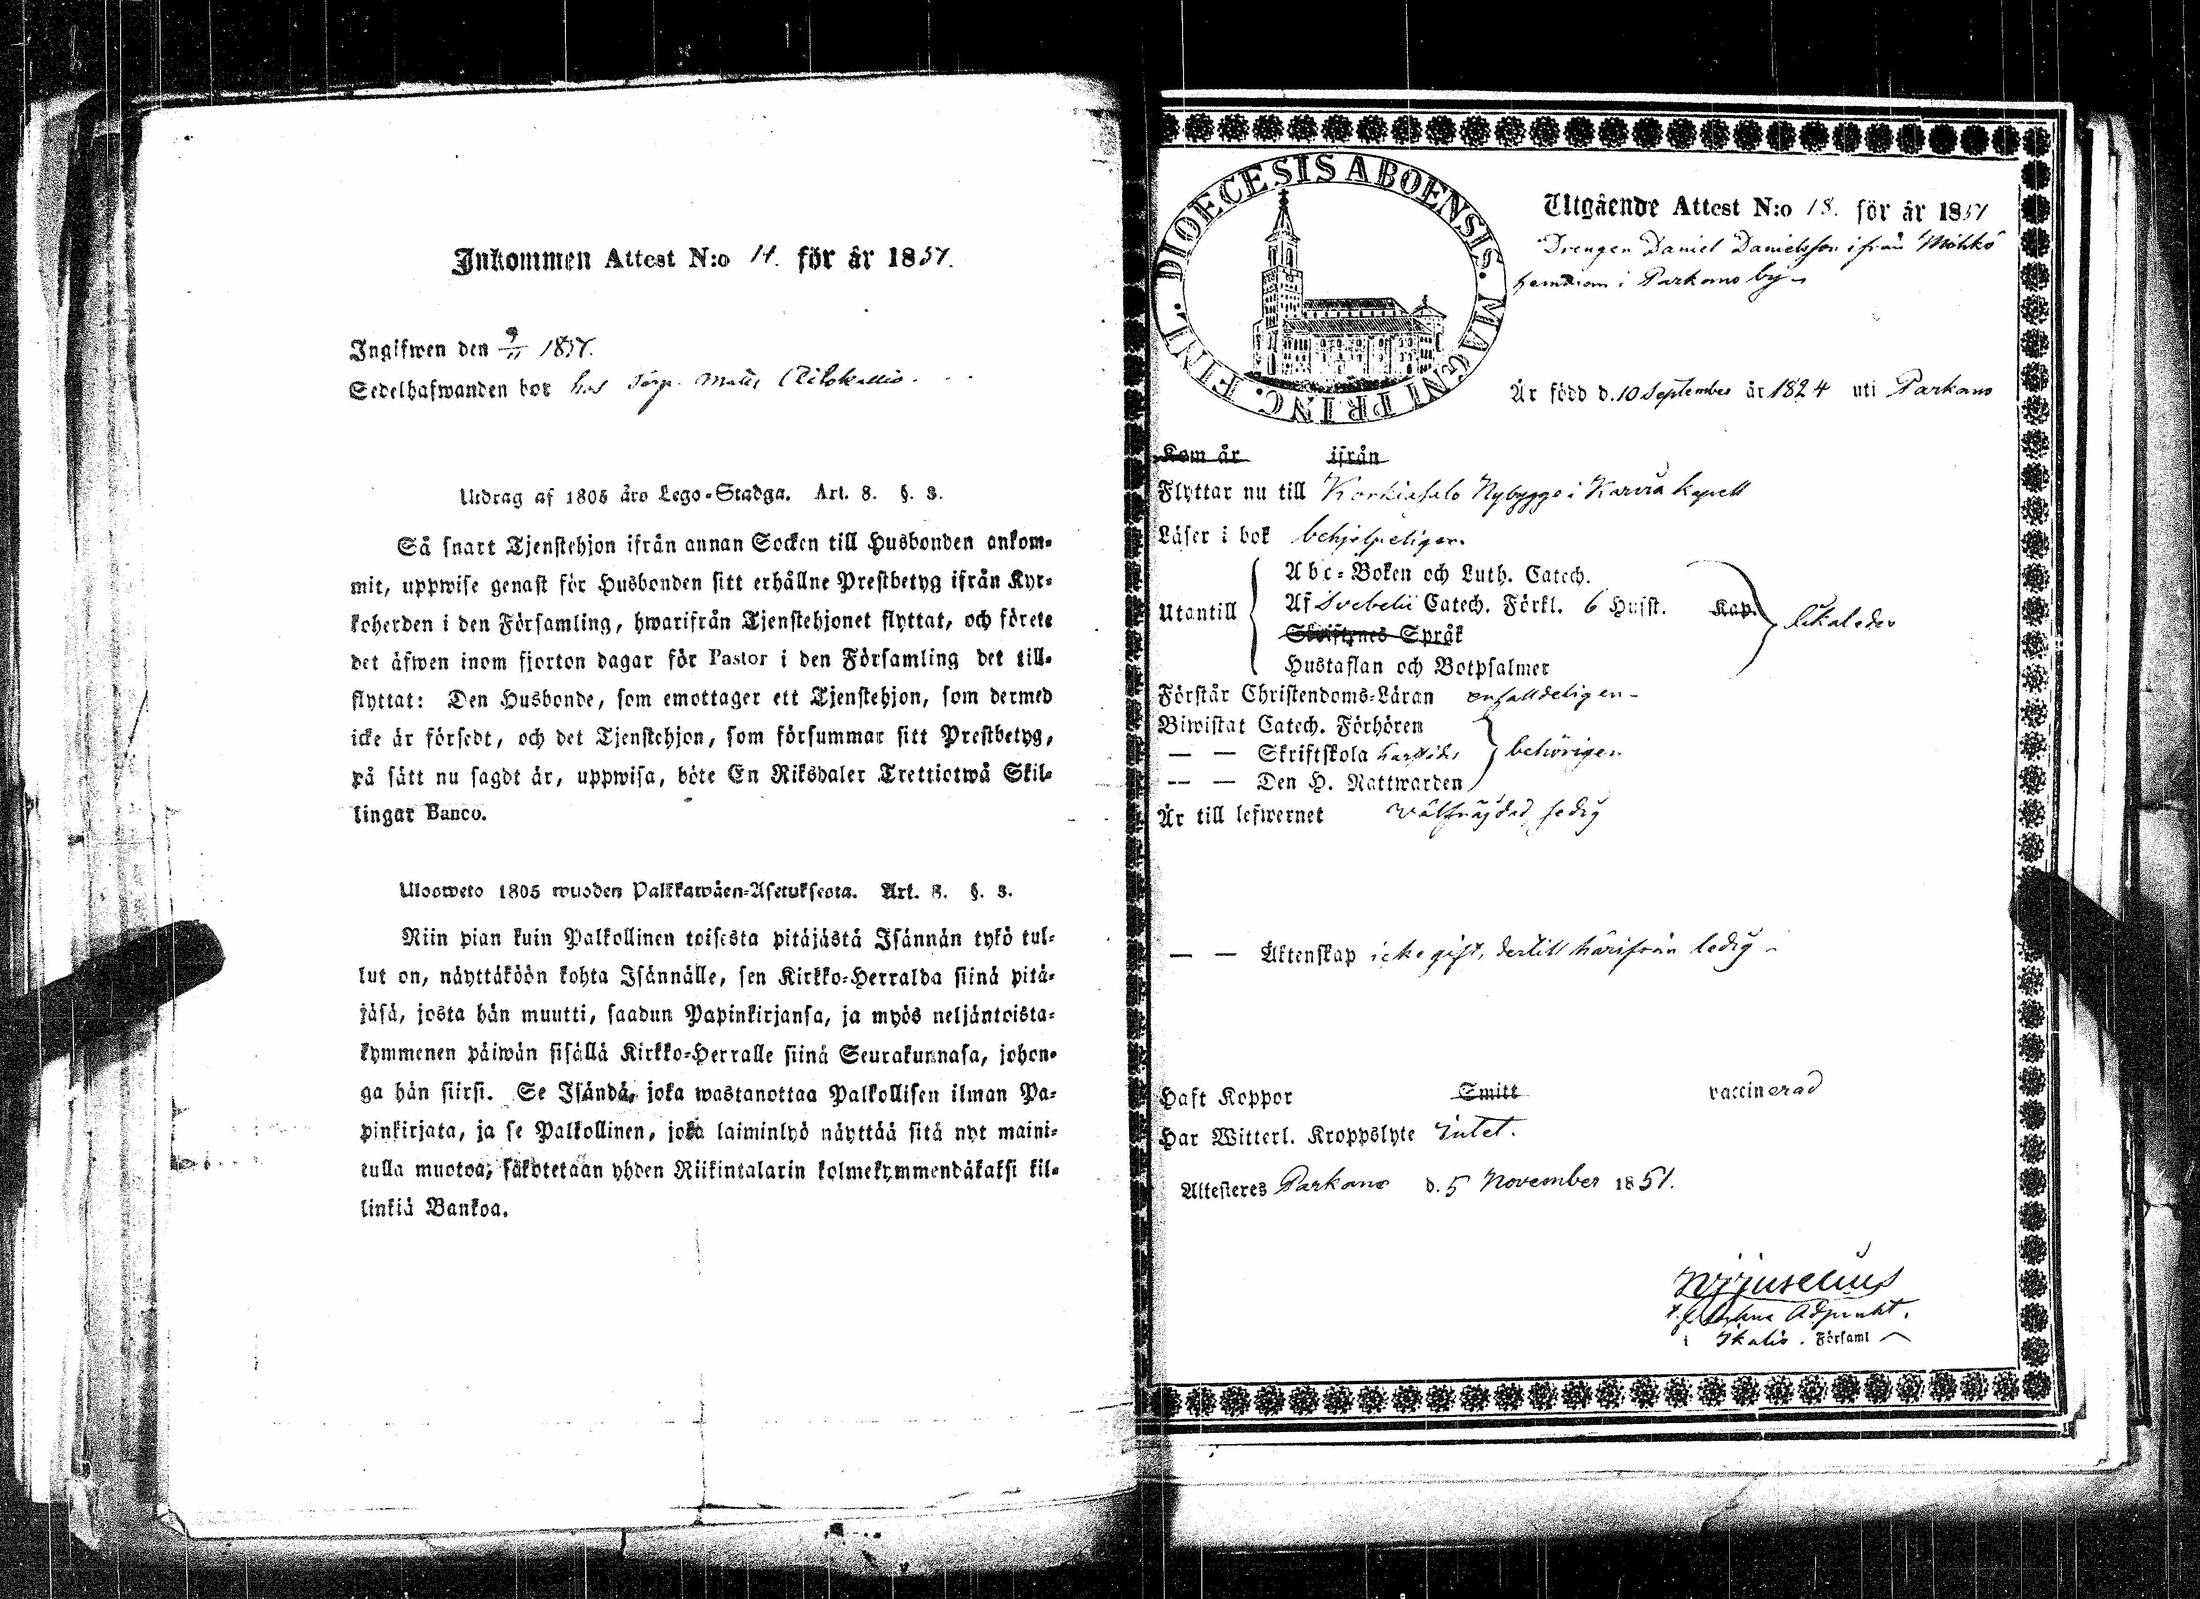 Inkommen Attest N:o 14. för år 1851.
Ingifwen den 9/11 1851.
Sedelhafwanden bor hos Torp. Matts
Utdrag af 1805 års Lego-Stadga. Art. 8. §. 3.
Så snart Tjenstehjon ifrån annan Socken till Husbonden ankom-
mit, uppwise genast för Husbonden sitt erhållne Prestbetyg ifrån Kyr-
koherden i den Församling, hwarifrån Tjenstehjonet flyttat, och förete
det äfwen inom fjorton dagar för Pastor i den Församling det till-
flyttat: Den Husbonde, som emottager ett Tjenstehjon, som dermed
icke är försedt, och det Tjenstehjon, som försummar sitt Prestbetyg,
på sätt nu sagdt är, uppwisa, böte En Riksdaler Trettiotwå Skil-
lingar Banco.
Ulosweto 1805 wuoden Palkkawäen-Asetuksesta. Art. 8. §. 3.
Niin pian kuin Palkollinen toisesta pitäjästä Isännän tykö tul-
lut on, näyttäköön kohta Isännälle, sen Kirkko-Herralda siinä pitä-
jäsä, josta hän muutti, saadun Papinkirjansa, ja myös neljäntoista-
kymmenen päiwän sisällä Kirkko-Herralle siinä Seurakunnasa, johon-
ga hän siirsi. Se Isändä, joka wastanottaa Palkollisen ilman Pa-
pinkirjata, ja se Palkollinen, joka laiminlyö näyttää sitä nyt maini-
tulla muotoa, sakotetaan yhden Riikintalarin kolmekymmendäkaksi kil-
linkiä Bankoa.
DIOECESIS ABOENSIS. MAGNI PRINC. FINL.
Utgående Attest N:o 18. för år 1851
Drengen Daniel Danielsson ifrån Möhkö
hemman i Parkano by
Är född d. 10 September år 1824 uti Parkano
Kom år ifrån
Flyttar nu till Korkiasalo Nybygge i Karvia kapell
Läser i bok behjelpeligen
Abc-Boken och Luth. Catech.
Utantill Af Svebelii Catech. Förkl. 6 Hufst. Kap. likaledes
Skriftenes Språk
Hustaflan och Botpsalmer
Förstår Christendoms-Läran enfalldeligen
Biwistat Catech. Förhören
— — Skriftskola behörigen
— — Den H. Nattwarden
Är till lefwernet välfräjdad, sedig
— — Äktenskap icke gift, dertill härifrån ledig
Haft Koppor Smitt vaccinerad
Har Witterl. Kroppslyte Intet.
Attesteras Parkano d. 5 November 1851.
Adjunkt.
i Ikalis. Församl